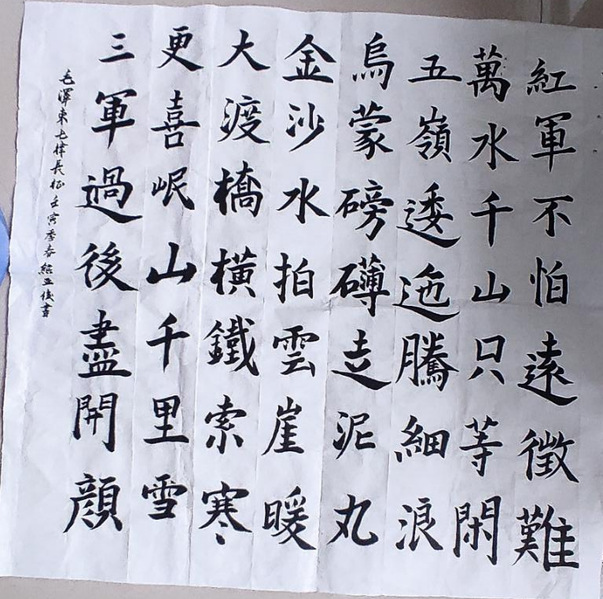 紅軍不怕遠徵難
萬水千山只等閑
五嶺逶迤騰細浪
烏蒙磅礴走泥丸
金沙水拍雲崖暖
大渡橋橫鐵索寒
更喜岷山千里雪
三軍過後盡開顔
毛澤東七律長征壬寅季春